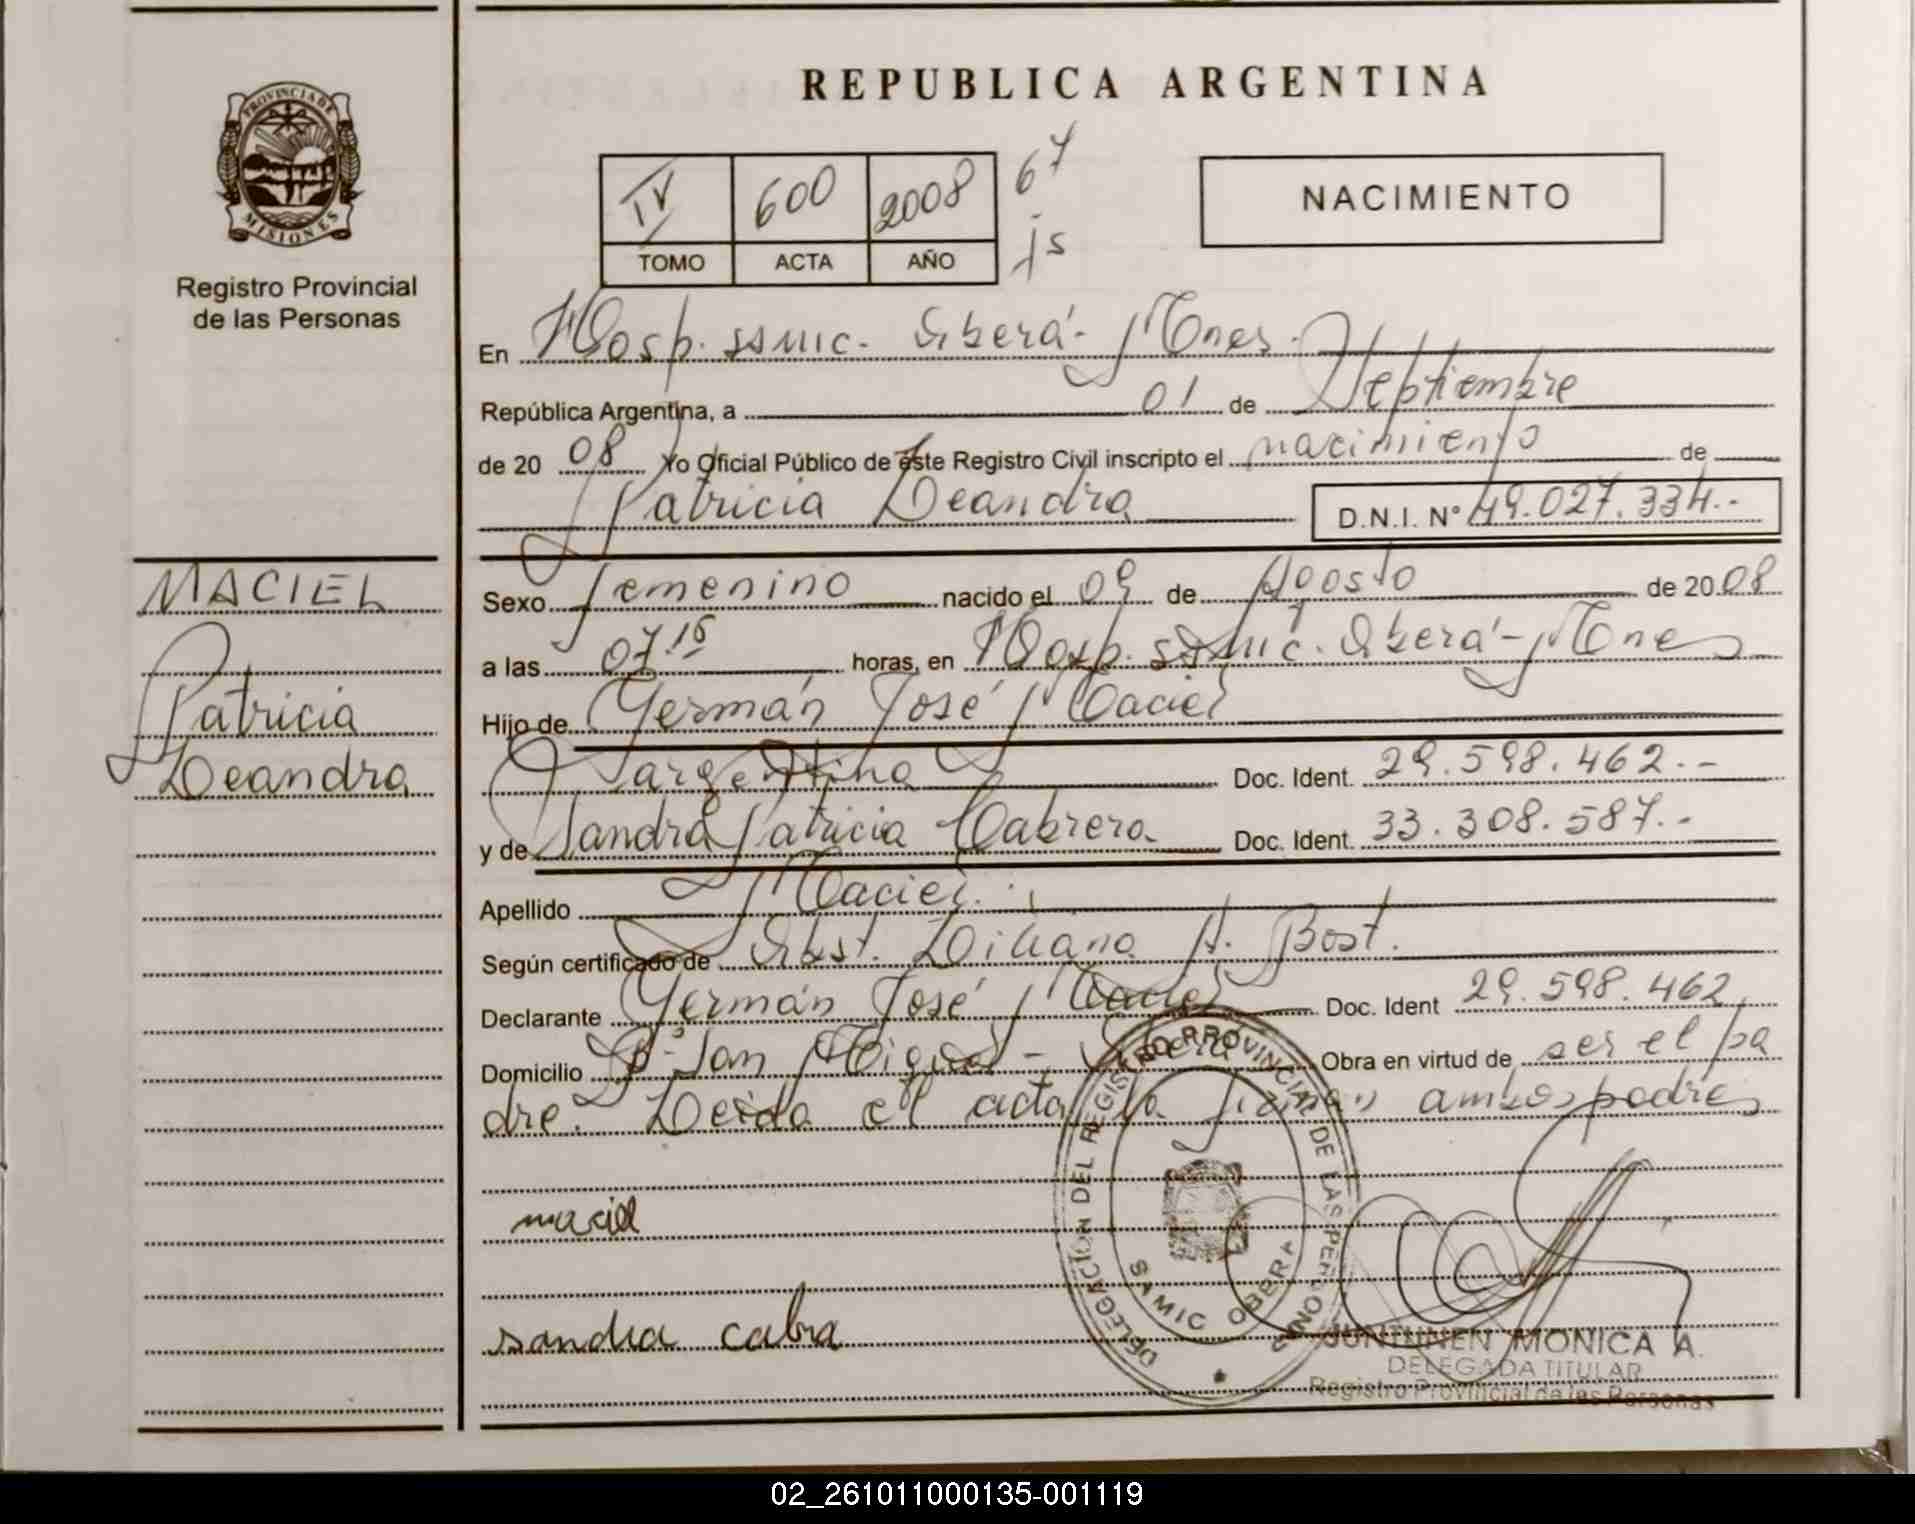 PROVINCIA DE
MISIONES
Registro Provincial
de las Personas
MACIEL
Patricia
Leandra
REPUBLICA ARGENTINA
IV 600 2008 67
TOMO ACTA AÑO js
NACIMIENTO
En Hosp. ssmic. Oberá - Mnes.
República Argentina, a 01 de Septiembre
de 20 08 Yo Oficial Público de este Registro Civil inscripto el nacimiento de
Patricia Leandra D.N.I. N° 49.027.334.-
Sexo femenino nacido el 09 de Agosto de 20 08
a las 07.15 horas, en Hosp. ssmic. Oberá - Mnes
Hijo de Germán José Maciel
argentina Doc. Ident. 29.598.462.-
y de Sandra Patricia Cabrera Doc. Ident. 33.308.587.-
Apellido Maciel.
Según certificado de Obst. Liliana A. Bost.
Declarante Germán José Maciel Doc. Ident 29.598.462
Domicilio Bº San Miguel - Oberá Obra en virtud de ser el pa
dre. Leida el acta la firman ambos padres
maciel
sandra cabra
DELEGACIÓN DEL REGISTRO PROVINCIAL DE LAS PERSONAS
SAMIC OBERA
JUNTUNEN MONICA A.
DELEGADA TITULAR
Registro Provincial de las Personas
02_261011000135-001119